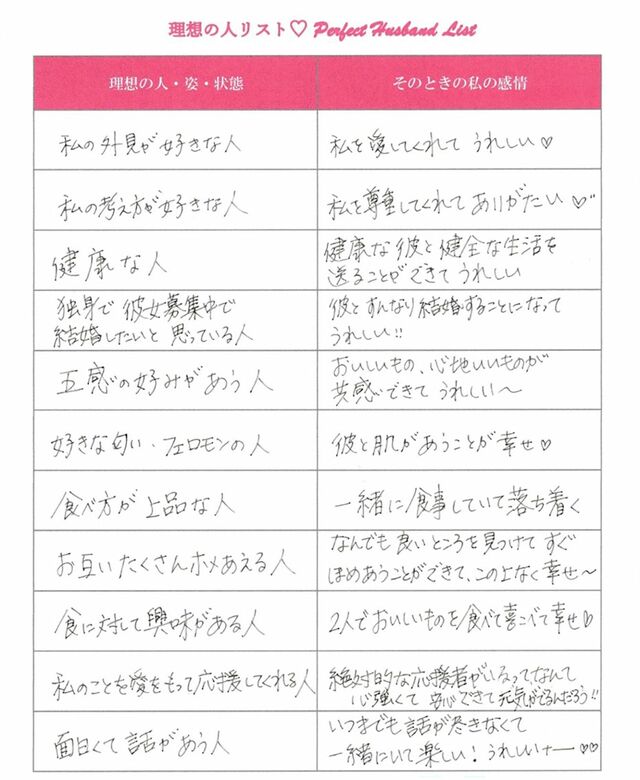 理想の人リスト♡ Perfect Husband List
理想の人・姿・状態
そのときの私の感情
私の外見が好きな人
私を愛してくれて うれしい♡
私の考え方が好きな人
私を尊重してくれて ありがたい♡
健康な人
健康な彼と健全な生活を
送ることができて うれしい
独身で 彼女募集中で
結婚したいと 思っている人
彼とすんなり結婚することになって
うれしい!!
五感の好みがあう人
おいしいもの、心地いいものが
共感できて うれしい〜
好きな匂い・フェロモンの人
彼と肌があうことが幸せ♡
食べ方が上品な人
一緒に食事していて落ち着く
お互いたくさんホメあえる人
なんでも良いところを見つけて すぐ
ほめあうことができて、この上なく幸せ〜
食に対して興味がある人
2人でおいしいものを食べて喜こべて幸せ♡
私のことを愛をもって応援してくれる人
絶対的な応援者がいるってなんて
心強くて 安心できて元気がでるんだろう!!
面白くて 話があう人
いつまでも話が尽きなくて
一緒にいて楽しい! うれしいナー♡♡